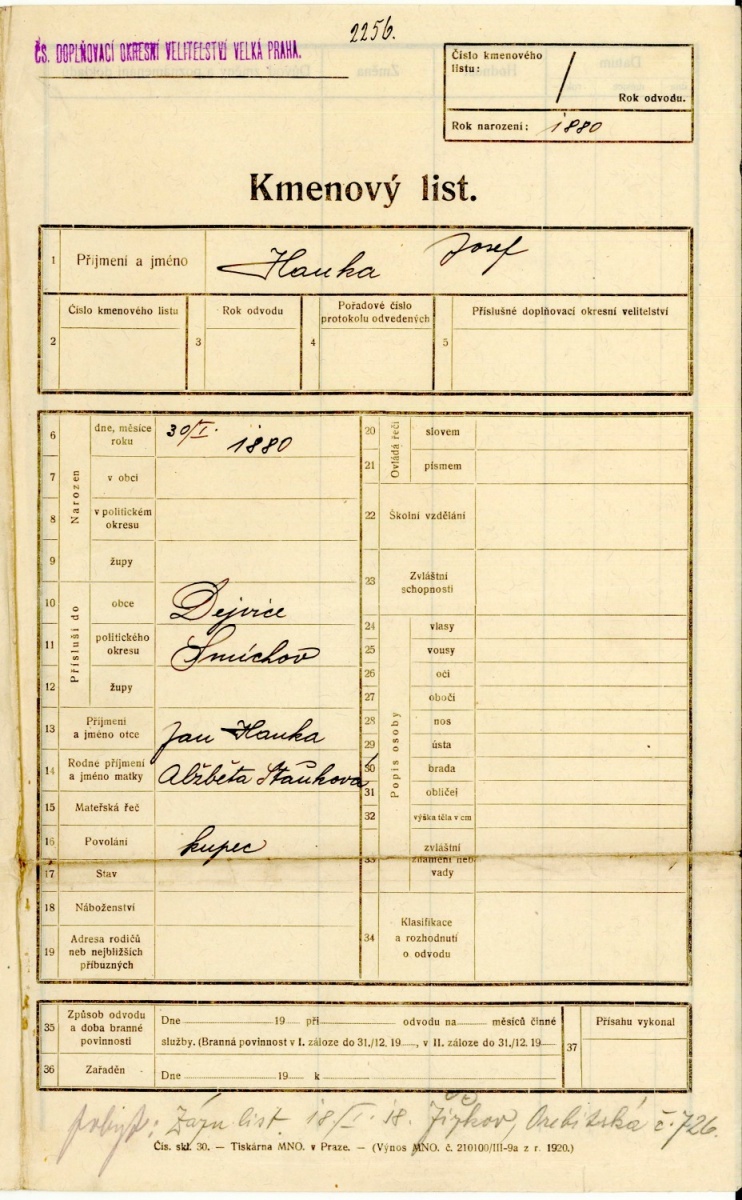 2256.
ČS. DOPLŇOVACÍ OKRESNÍ VELITELSTVÍ VELKÁ PRAHA.
Číslo kmenového
listu: /
Rok odvodu.
Rok narození: 1880
Kmenový list.
1 Příjmení a jméno Hauka Josef
2 Číslo kmenového listu
3 Rok odvodu
4 Pořadové číslo
protokolu odvedených
5 Příslušné doplňovací okresní velitelství
Narozen
6 dne, měsíce
roku 30/I. 1880
7 v obci
8 v politickém
okresu
9 župy
Přísluší do
10 obce Dejvice
11 politického
okresu Smíchov
12 župy
13 Příjmení
a jméno otce Jan Hauka
14 Rodné příjmení
a jméno matky Alžběta
15 Mateřská řeč
16 Povolání kupec
17 Stav
18 Náboženství
19 Adresa rodičů
neb nejbližších
příbuzných
Ovládá řeči
20 slovem
21 písmem
22 Školní vzdělání
23 Zvláštní
schopnosti
Popis osoby
24 vlasy
25 vousy
26 oči
27 obočí
28 nos
29 ústa
30 brada
31 obličej
32 výška těla v cm
33 zvláštní
znamení neb
vady
34 Klasifikace
a rozhodnutí
o odvodu
35 Způsob odvodu
a doba branné
povinnosti
Dne 19 při odvodu na měsíců činné
služby. (Branná povinnost v I. záloze do 31./12. 19, v II. záloze do 31./12. 19
36 Zařaděn
Dne 19 k
37 Přísahu vykonal
pobyt: list. 18/I. 18. Žižkov, Orebitská č. 726.
Čís. skl. 30. — Tiskárna MNO. v Praze. — (Výnos MNO. č. 210100/III-9a z r. 1920.)